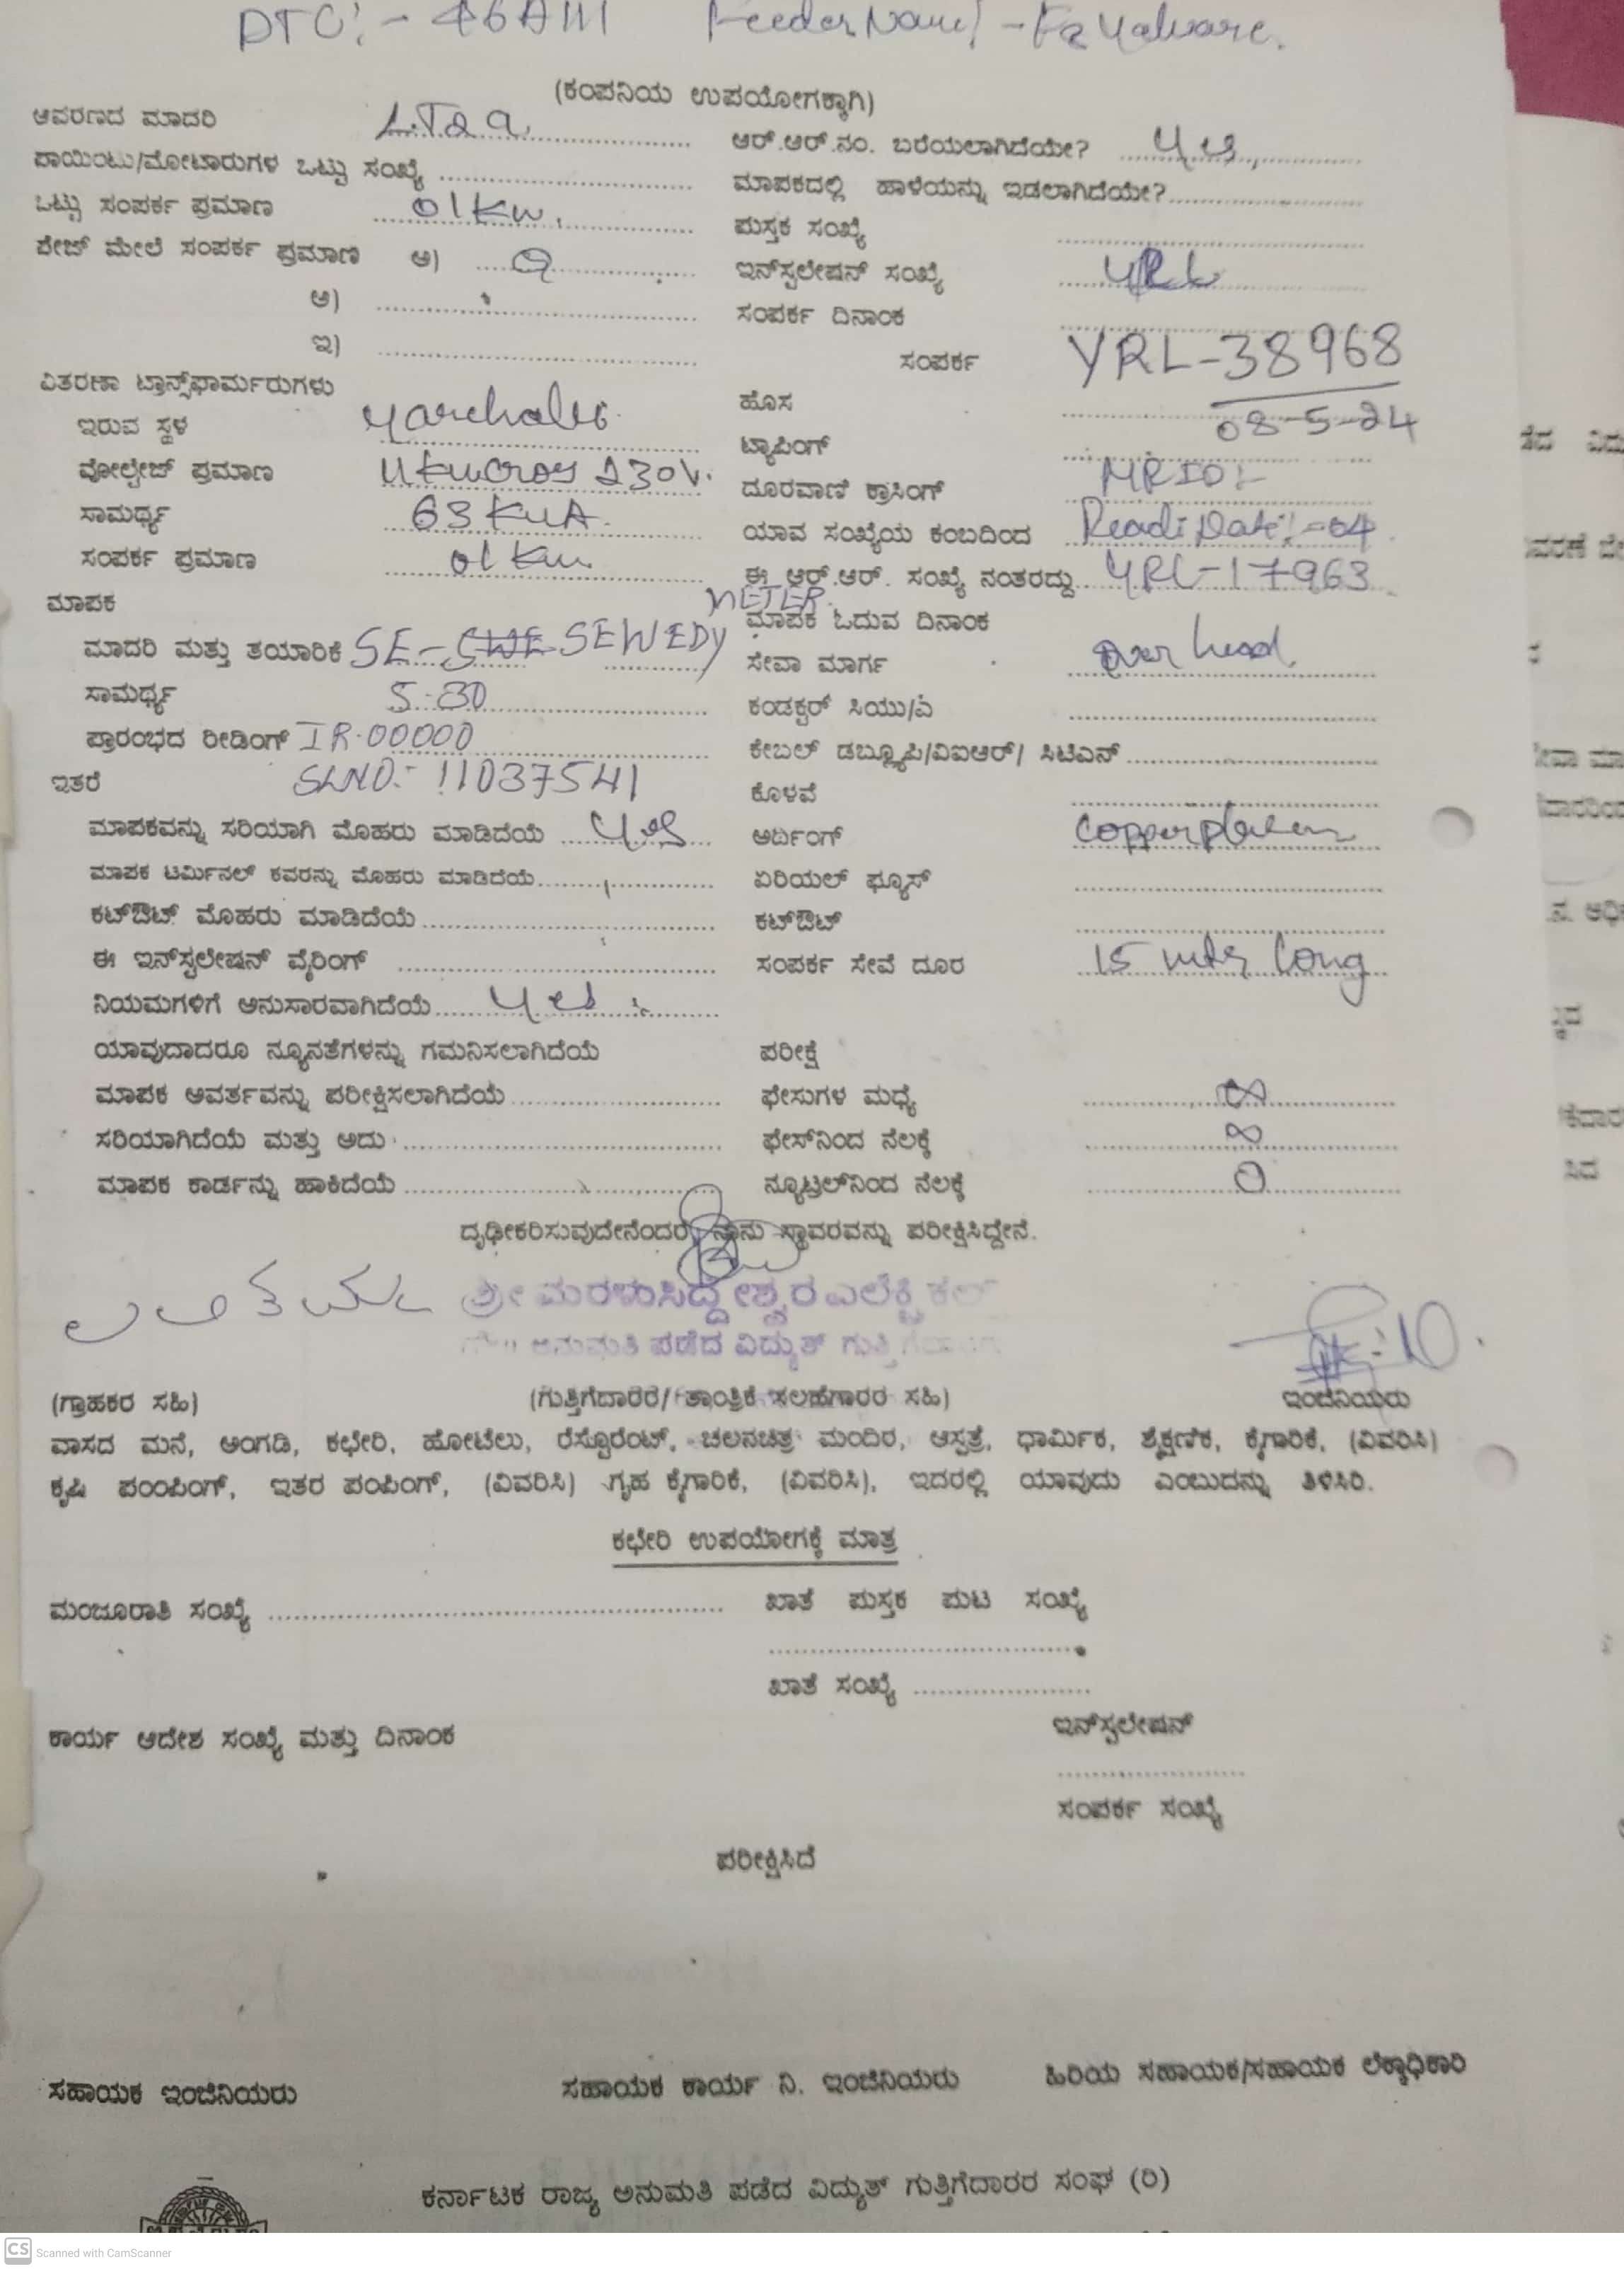 DTC:- Feeder Name:-
(ಕಂಪನಿಯ ಉಪಯೋಗಕ್ಕಾಗಿ)
ಆವರಣದ ಮಾದರಿ L.T2 a.
ಆರ್.ಆರ್.ನಂ. ಬರೆಯಲಾಗಿದೆಯೇ? Yes,
ಪಾಯಿಂಟು/ಮೋಟಾರುಗಳ ಒಟ್ಟು ಸಂಖ್ಯೆ
ಮಾಪಕದಲ್ಲಿ ಹಾಳೆಯನ್ನು ಇಡಲಾಗಿದೆಯೇ?
ಒಟ್ಟು ಸಂಪರ್ಕ ಪ್ರಮಾಣ 01 KW.
ಪುಸ್ತಕ ಸಂಖ್ಯೆ
ಶೇಜ್ ಮೇಲೆ ಸಂಪರ್ಕ ಪ್ರಮಾಣ ಅ)
ಇನ್‌ಸ್ಟಲೇಷನ್ ಸಂಖ್ಯೆ YRL
ಆ)
ಸಂಪರ್ಕ ದಿನಾಂಕ
ಇ)
ಸಂಪರ್ಕ YRL-38968
ವಿತರಣಾ ಟ್ರಾನ್ಸ್‌ಫಾರ್ಮರುಗಳು
ಹೊಸ 08-5-24
ಇರುವ ಸ್ಥಳ
ಟ್ಯಾಪಿಂಗ್
ವೋಲ್ಟೇಜ್ ಪ್ರಮಾಣ 230V.
ದೂರವಾಣಿ ಕ್ರಾಸಿಂಗ್
ಸಾಮರ್ಥ್ಯ 63 KVA.
ಯಾವ ಸಂಖ್ಯೆಯ ಕಂಬದಿಂದ Readi Date:-04
ಸಂಪರ್ಕ ಪ್ರಮಾಣ 01 KW.
ಈ ಆರ್.ಆರ್. ಸಂಖ್ಯೆ ನಂತರದ್ದು YRL-17963
ಮಾಪಕ METER
ಮಾಪಕ ಓದುವ ದಿನಾಂಕ
ಮಾದರಿ ಮತ್ತು ತಯಾರಿಕೆ SE- SEWEDY
ಸೇವಾ ಮಾರ್ಗ over head
ಸಾಮರ್ಥ್ಯ 5-30
ಕಂಡಕ್ಟರ್ ಸಿಯು/ಎ
ಪ್ರಾರಂಭದ ರೀಡಿಂಗ್ IR-00000
ಕೇಬಲ್ ಡಬ್ಲ್ಯೂಪಿ/ವಿಐಆರ್/ ಸಿಟಿಎನ್
ಇತರೆ SLNO:- 11037541
ಕೊಳವೆ
ಮಾಪಕವನ್ನು ಸರಿಯಾಗಿ ಮೊಹರು ಮಾಡಿದೆಯೆ Yes
ಅರ್ದಿಂಗ್
ಮಾಪಕ ಟರ್ಮಿನಲ್ ಕವರನ್ನು ಮೊಹರು ಮಾಡಿದೆಯೆ
ಏರಿಯಲ್ ಫ್ಯೂಸ್
ಕಟ್‌ಔಟ್ ಮೊಹರು ಮಾಡಿದೆಯೆ
ಕಟ್‌ಔಟ್
ಈ ಇನ್‌ಸ್ಟಲೇಷನ್ ವೈರಿಂಗ್
ಸಂಪರ್ಕ ಸೇವೆ ದೂರ 15 mtr long
ನಿಯಮಗಳಿಗೆ ಅನುಸಾರವಾಗಿದೆಯೆ Yes
ಯಾವುದಾದರೂ ನ್ಯೂನತೆಗಳನ್ನು ಗಮನಿಸಲಾಗಿದೆಯೆ
ಪರೀಕ್ಷೆ
ಮಾಪಕ ಆವರ್ತವನ್ನು ಪರೀಕ್ಷಿಸಲಾಗಿದೆಯೆ
ಫೇಸುಗಳ ಮಧ್ಯೆ ∞
ಸರಿಯಾಗಿದೆಯೆ ಮತ್ತು ಅದು
ಫೇಸ್‌ನಿಂದ ನೆಲಕ್ಕೆ ∞
ಮಾಪಕ ಕಾರ್ಡನ್ನು ಹಾಕಿದೆಯೆ
ನ್ಯೂಟ್ರಲ್‌ನಿಂದ ನೆಲಕ್ಕೆ 0
ದೃಢೀಕರಿಸುವುದೇನೆಂದರೆ ನಾನು ಸ್ಥಾವರವನ್ನು ಪರೀಕ್ಷಿಸಿದ್ದೇನೆ.
ಶ್ರೀ ಮರಳುಸಿದ್ದೇಶ್ವರ ಎಲೆಕ್ಟ್ರಿಕಲ್
ಅನುಮತಿ ಪಡೆದ ವಿದ್ಯುತ್
(ಗ್ರಾಹಕರ ಸಹಿ) (ಗುತ್ತಿಗೆದಾರರ/ ತಾಂತ್ರಿಕೆ ಸಲಹೆಗಾರರ ಸಹಿ) ಇಂಜಿನಿಯರು
ವಾಸದ ಮನೆ, ಅಂಗಡಿ, ಕಛೇರಿ, ಹೋಟೆಲು, ರೆಸ್ಟೊರೆಂಟ್, ಚಲನಚಿತ್ರ ಮಂದಿರ, ಆಸ್ಪತ್ರೆ, ಧಾರ್ಮಿಕ, ಶೈಕ್ಷಣಿಕ, ಕೈಗಾರಿಕೆ, (ವಿವರಿಸಿ)
ಕೃಷಿ ಪಂಪಿಂಗ್, ಇತರ ಪಂಪಿಂಗ್, (ವಿವರಿಸಿ) ಗೃಹ ಕೈಗಾರಿಕೆ, (ವಿವರಿಸಿ), ಇದರಲ್ಲಿ ಯಾವುದು ಎಂಬುದನ್ನು ತಿಳಿಸಿರಿ.
ಕಛೇರಿ ಉಪಯೋಗಕ್ಕೆ ಮಾತ್ರ
ಮಂಜೂರಾತಿ ಸಂಖ್ಯೆ
ಖಾತೆ ಪುಸ್ತಕ ಪುಟ ಸಂಖ್ಯೆ
ಖಾತೆ ಸಂಖ್ಯೆ
ಇನ್‌ಸ್ಟಲೇಷನ್
ಕಾರ್ಯ ಆದೇಶ ಸಂಖ್ಯೆ ಮತ್ತು ದಿನಾಂಕ
ಸಂಪರ್ಕ ಸಂಖ್ಯೆ
ಪರೀಕ್ಷಿಸಿದೆ
ಸಹಾಯಕ ಇಂಜಿನಿಯರು ಸಹಾಯಕ ಕಾರ್ಯ ನಿ. ಇಂಜಿನಿಯರು ಹಿರಿಯ ಸಹಾಯಕ/ಸಹಾಯಕ ಲೆಕ್ಕಾಧಿಕಾರಿ
ಕರ್ನಾಟಕ ರಾಜ್ಯ ಅನುಮತಿ ಪಡೆದ ವಿದ್ಯುತ್ ಗುತ್ತಿಗೆದಾರರ ಸಂಘ (ರಿ)
CS Scanned with CamScanner